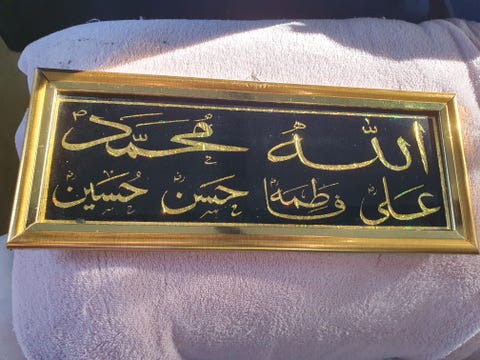 الله محمد
علی فاطمه حسن حسین